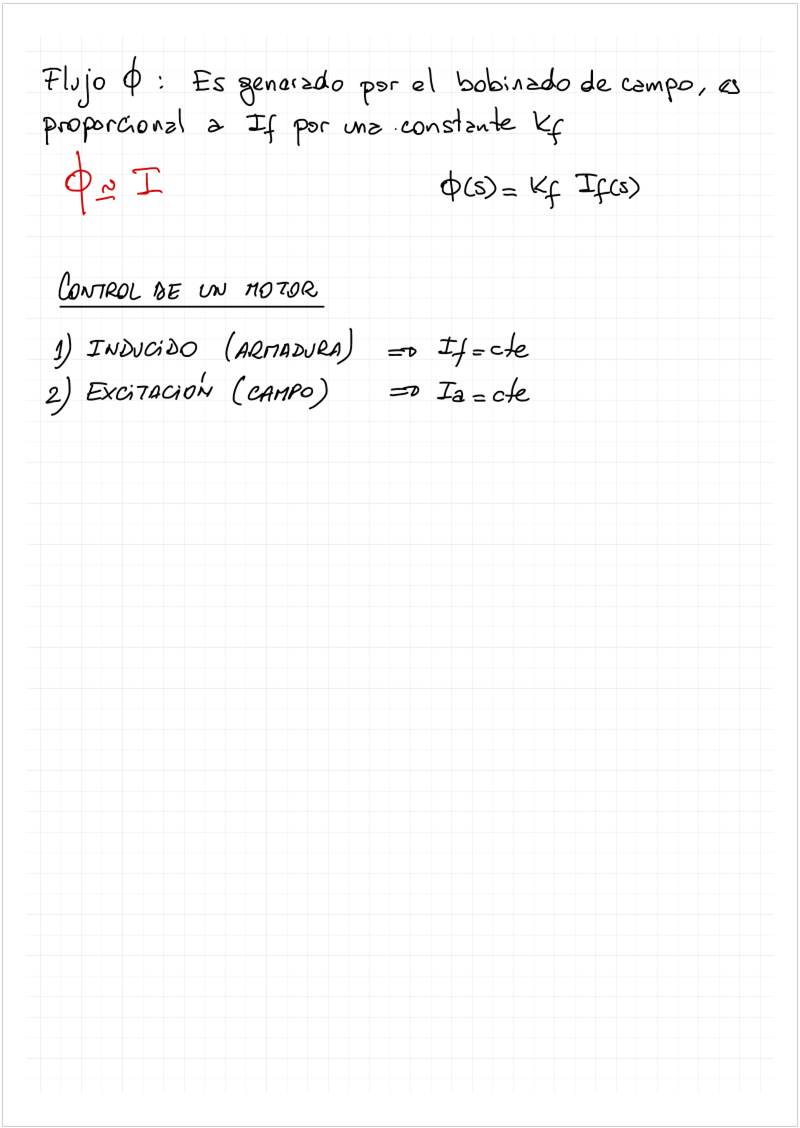 Flujo ϕ : Es generado por el bobinado de campo, es
proporcional a If por una constante Kf
ϕ ≃ I
ϕ(s) = Kf If(s)
CONTROL DE UN MOTOR
1) INDUCIDO (ARMADURA) ⇒ If = cte
2) EXCITACIÓN (CAMPO) ⇒ Ia = cte